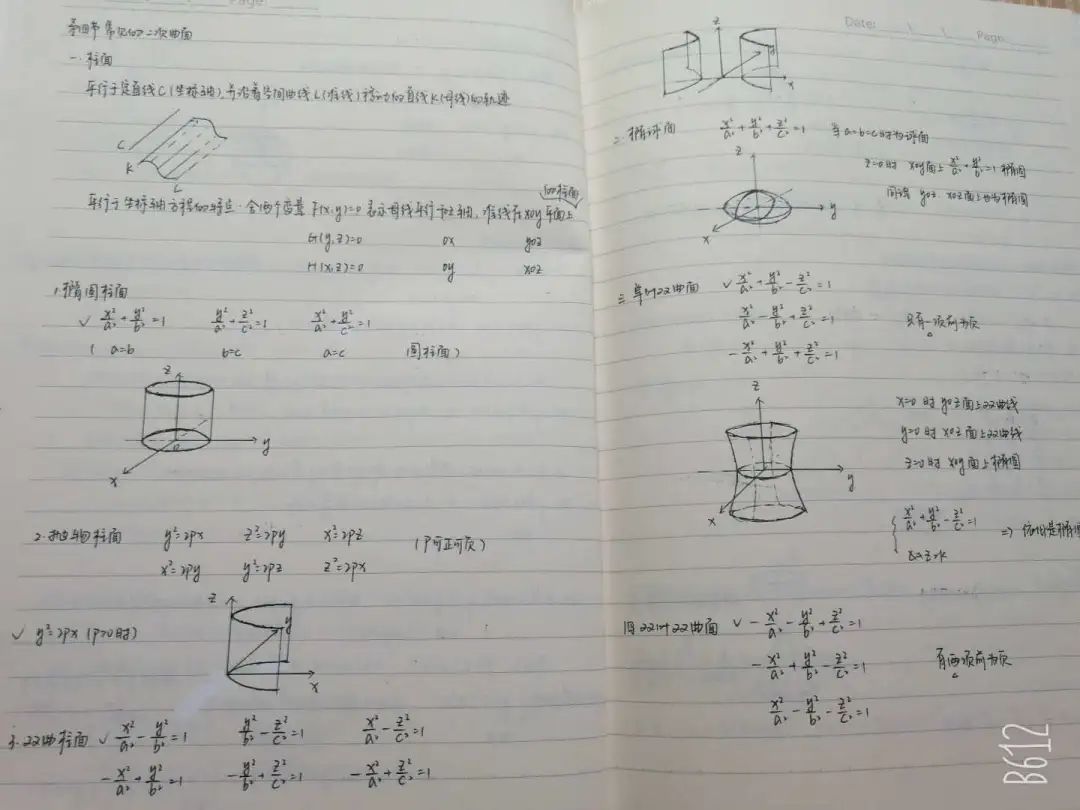 Page:
第四节 常见的二次曲面
一. 柱面
平行于定直线C(坐标轴),并沿着空间曲线L(准线)移动的直线K(母线)的轨迹
C
K
L
的柱面
平行于坐标轴方程的特点. 含两个变量 F(x,y)=0 表示母线平行于z轴, 准线在xoy平面上
G(y,z)=0 ox yoz
H(x,z)=0 oy xoz
1.椭圆柱面
✓ x²/a²+y²/b²=1 y²/b²+z²/c²=1 x²/a²+y²/c²=1
( a=b b=c a=c 圆柱面)
z
o
y
x
2.抛物柱面 y²=2px z²=2py x²=2pz (P可正可负)
x²=2py y²=2pz z²=2px
✓ y²=2px (p>0时)
z
y
x
3.双曲柱面 ✓ x²/a²-y²/b²=1 y²/b²-z²/c²=1 x²/a²-z²/c²=1
-x²/a²+y²/b²=1 -y²/b²+z²/c²=1 -x²/a²+z²/c²=1
Date: \ \ Page
z
y
x
二.椭球面 x²/a²+y²/b²+z²/c²=1 当a=b=c时为球面
z=0时 xoy面上 x²/a²+y²/b²=1 椭圆
同理 yoz. xoz面上也为椭圆
z
y
x
三 单叶双曲面 ✓ x²/a²+y²/b²-z²/c²=1
x²/a²-y²/b²+z²/c²=1 只有一项前为负
-x²/a²+y²/b²+z²/c²=1
z
y
x
x=0时 yoz面上双曲线
y=0时 xoz面上双曲线
z=0时 xoy面上椭圆
{ x²/a²+y²/b²-z²/c²=1 ⇒ 是椭圆
四 双叶双曲面 ✓ -x²/a²-y²/b²+z²/c²=1
-x²/a²+y²/b²-z²/c²=1 有两项前为负
x²/a²-y²/b²-z²/c²=1
B612